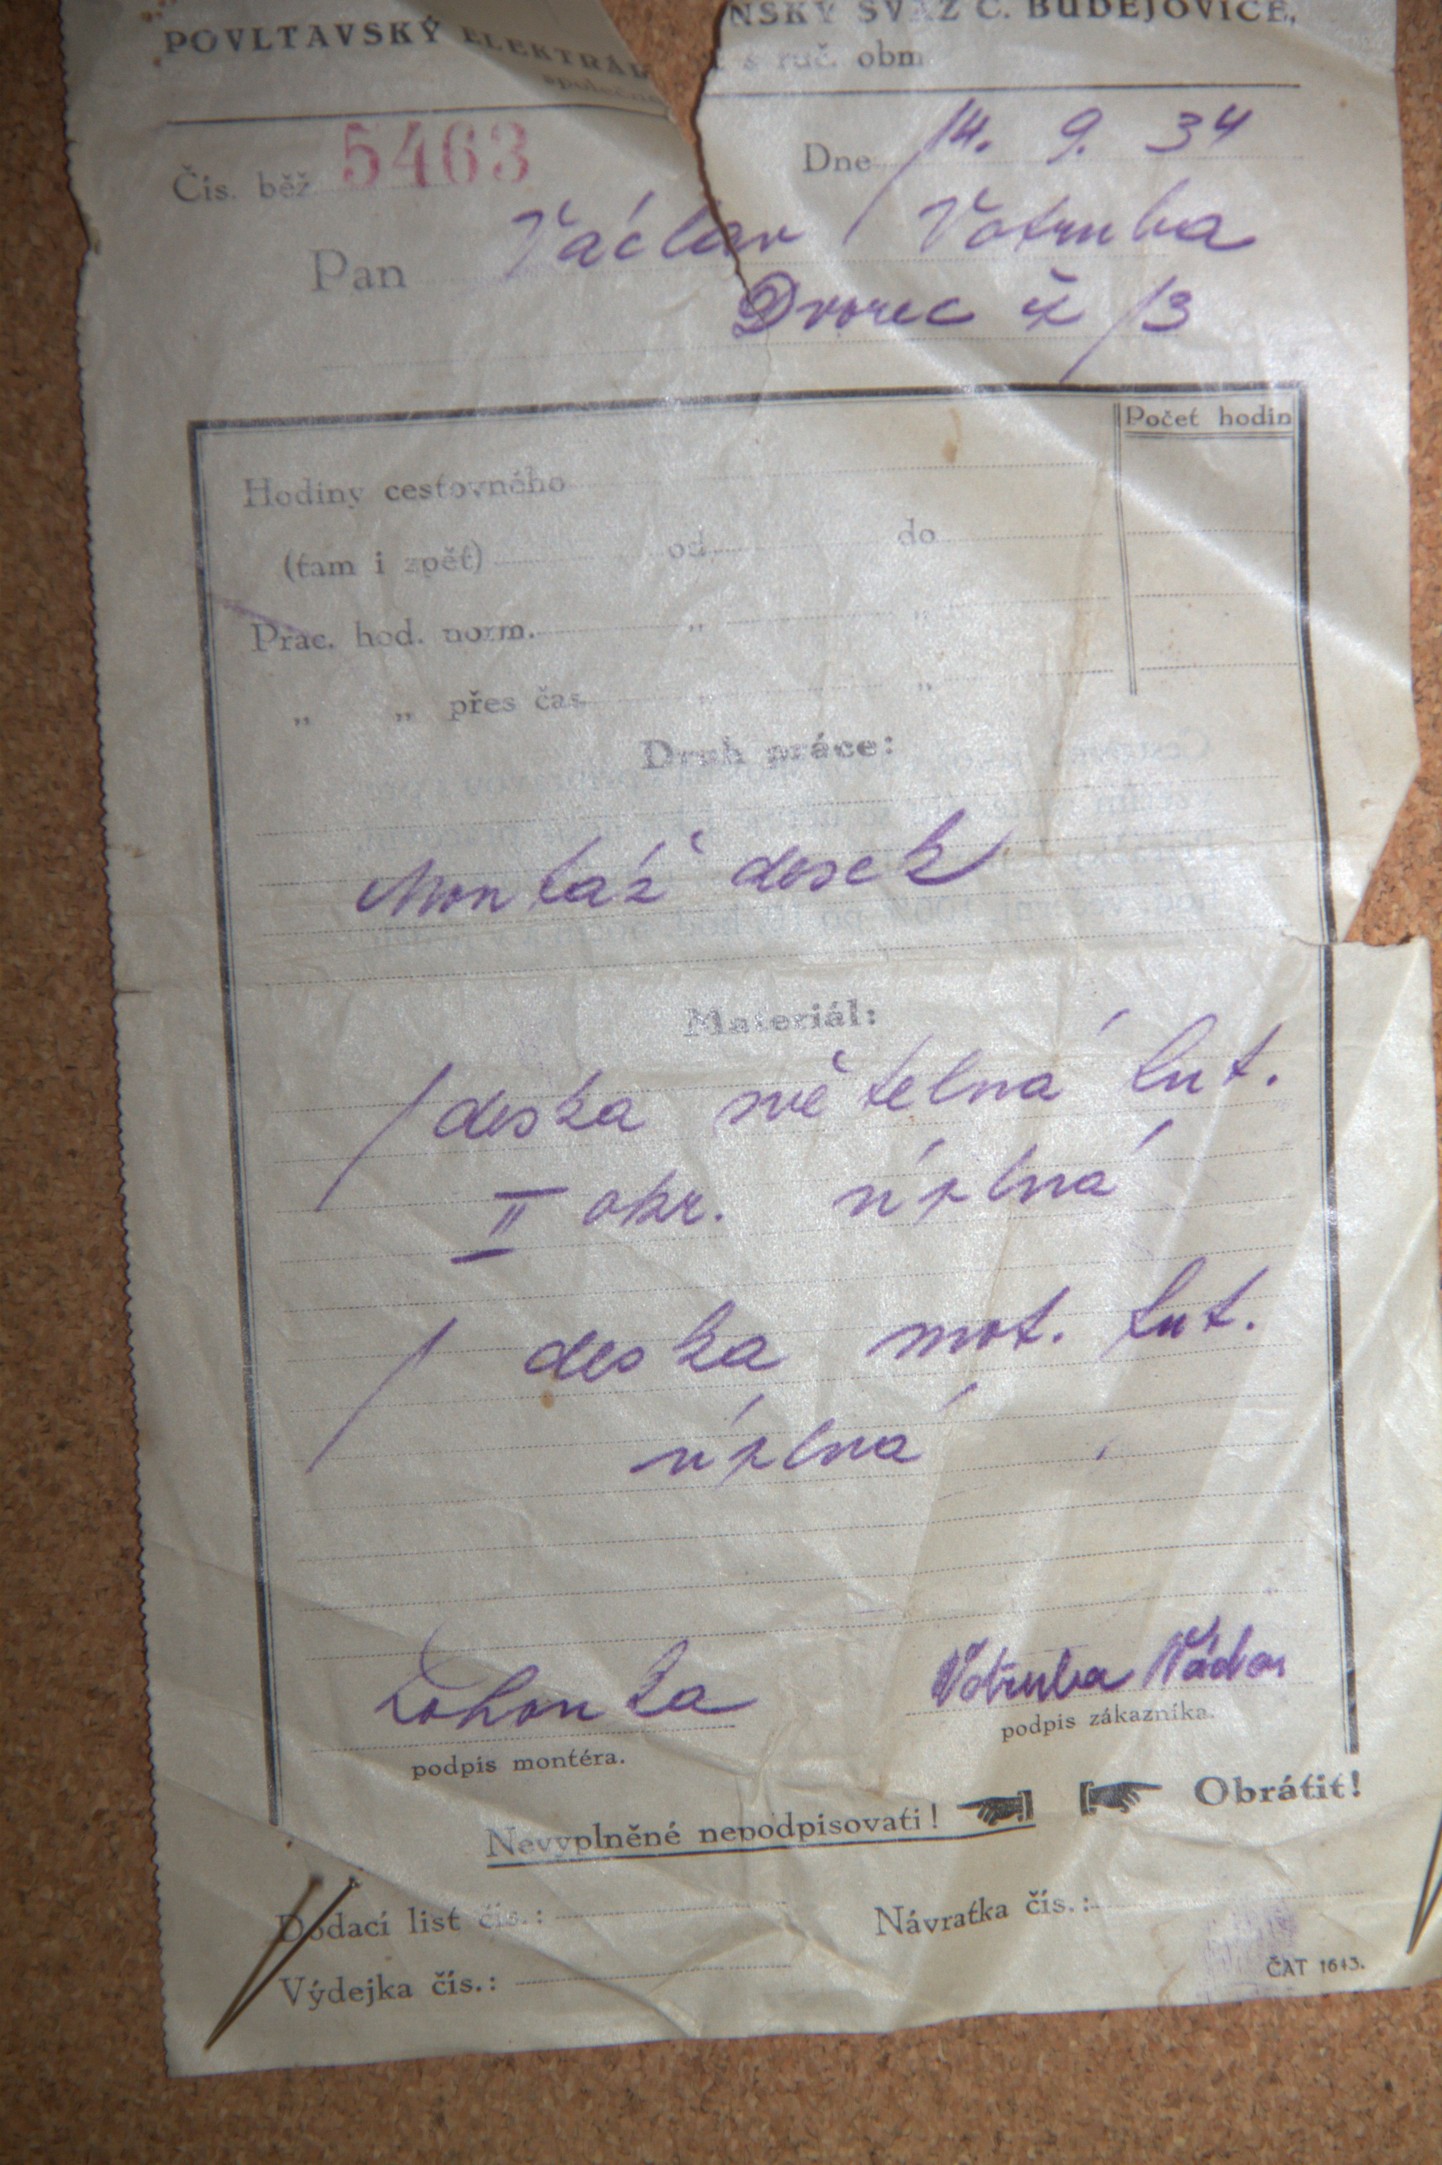 POVLTAVSKÝ ELEKTRÁRNSKÝ SVAZ Č. BUDĚJOVICE,
s ruč. obm
Čís. běž. 5463 Dne 14. 9. 34
Pan Václav Votruba
Dvorec č. 13
Počet hodin
Hodiny cestovného
(tam i zpět) od do
Prac. hod. norm. „ „
„ „ přes čas „ „
Druh práce:
Montáž desek
Materiál:
1 deska světelná lut.
II okr. úplná
1 deska mot. lut.
úplná
Votruba
podpis montéra. podpis zákazníka.
Nevyplněné nepodpisovati! Obrátit!
Dodací list čís.: Návratka čís.:
Výdejka čís.:
ČAT 1643.